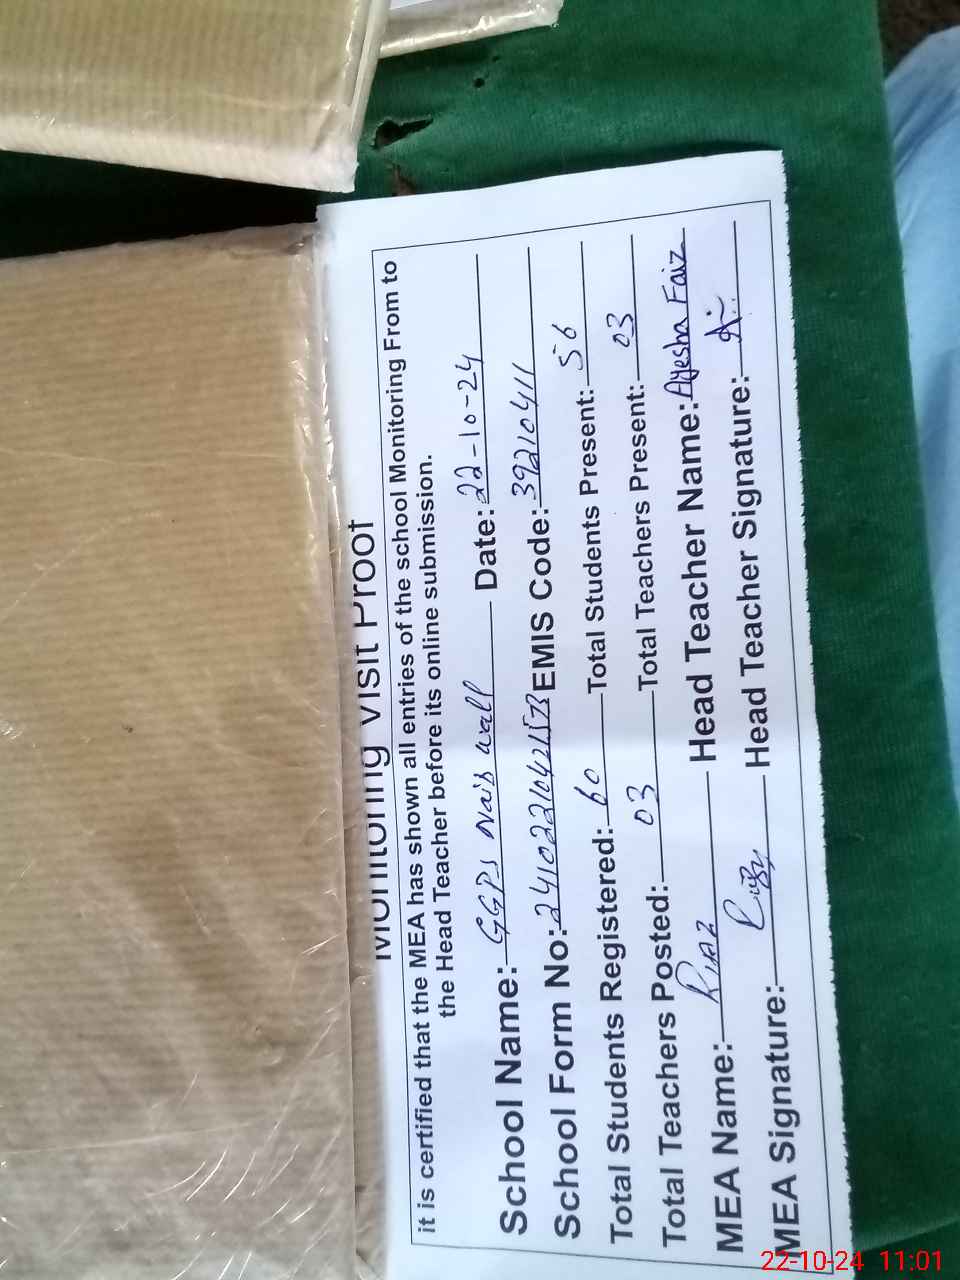 Monitoring Visit Proof
it is certified that the MEA has shown all entries of the school Monitoring From to
the Head Teacher before its online submission.
School Name: GGPS Naib wall Date: 22-10-24
School Form No: 24102210421573 EMIS Code: 39210411
Total Students Registered: 60 Total Students Present: 56
Total Teachers Posted: 03 Total Teachers Present: 03
MEA Name: Riaz Head Teacher Name: Ayesha Faiz
MEA Signature: Head Teacher Signature:
22-10-24 11:01